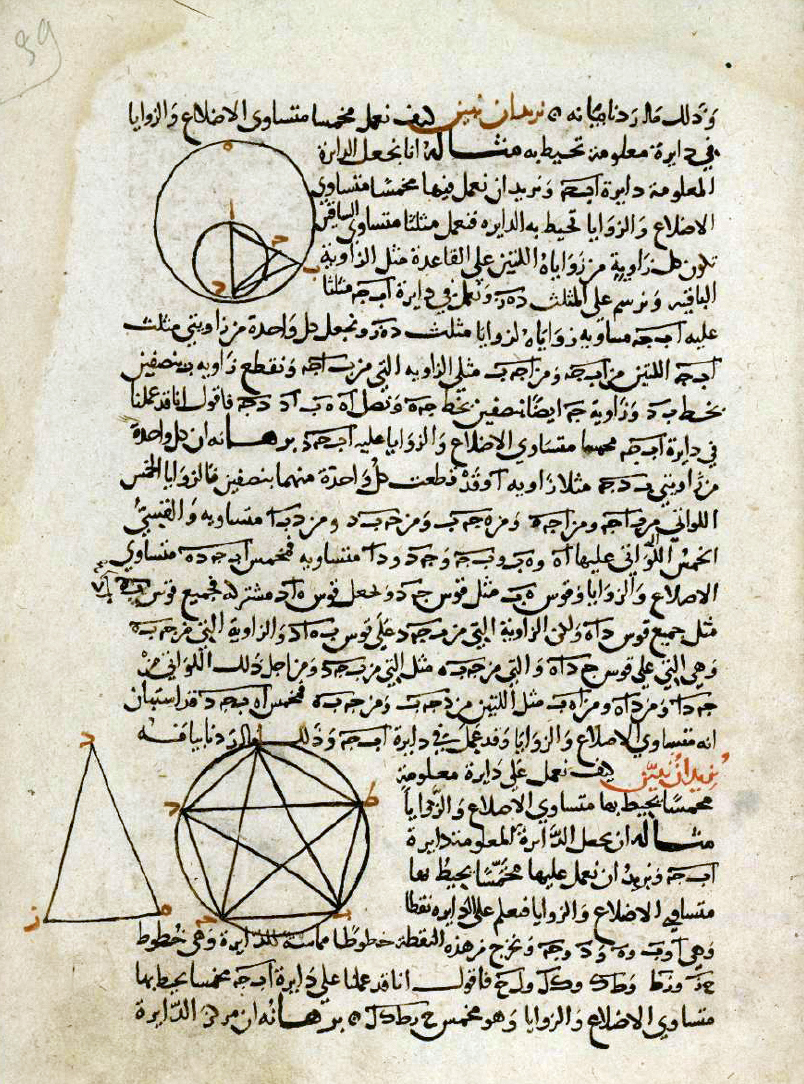 39
وذلك ما اردنا بيانه نريد ان نبين كيف نعمل مخمسا متساوى الاضلاع والزوايا
في دايرة معلومة تحيط به مثاله انا نجعل الدايرة
المعلومة دايرة ابجه ونريد ان نعمل فيها مخمسا متساوي
الاضلاع والزوايا تحيط به الدايره فنعمل مثلثا متساوي الساقين
تكون كل زاوية من زواياه اللتين على القاعدة مثلي الزاوية
الباقيه ونرسم على المثلث دهز ونعمل في دايرة ابجه مثلثا
عليه ابجه مساويه زواياه لزوايا مثلث دهز ونجعل كل واحدة من زاويتي مثلث
ابجه اللتين من ابجه ومن اجهب مثلي الزاويه التي من باجه ونقطع زاويه بنصفين
بخط بد وزاوية جه ايضا نصفين بخط جه ونصل اه هب اد دجه فاقول انا قد عملنا
في دايرة ابجه مخمسا متساوي الاضلاع والزوايا عليه ابجهد برهانه ان كل واحدة
من زاويتي مثلا زاويه وقد قطعت كل واحدة منهما بنصفين فالزوايا الخمس
اللواتي من باجه ومن اجه ومن هجهب ومن جهبد ومن دبا متساويه والقسي
الخمس اللواتي عليها اه وهب وبجه وجهد ودا متساويه فمخمس ابجهده متساوي
الاضلاع والزوايا وقوس هب مثل قوس جهد ونجعل قوس هاد مشتركه فجميع قوس
مثل جميع قوس داه ولكن الزاوية التي من بجهد على قوس بهاد والزاوية التي من جهبه
وهي التي على قوس جداه والتي من جهبه مثل التي من بجهد ومن اجل ذلك اللواتي من
جهدا ومن داه ومن اهب مثل اللتين من دجهب ومن جهبه فمخمس اهبجهد قد استبان
انه متساوي الاضلاع والزوايا وقد عمل في دايرة ابجه وذلك ما اردنا بيانه
نريد ان نبين كيف نعمل على دايرة معلومة
مخمسا يحيط بها متساوي الاضلاع والزوايا
مثاله ان نجعل الدايرة المعلومة دايرة
ابجه ونريد ان نعمل عليها مخمسا يحيط بها
متساوي الاضلاع والزوايا فنعلم على الدايره نقطا
وهي اوب وه ود وجه ونخرج من هذه النقطة خطوطا مماسة للدايرة وهي خطوط
وزط وطك وكل ولح فاقول انا قد عملنا على دايرة ابجه مخمسا يحيط بها
متساوي الاضلاع والزوايا وهو مخمس ح زطكل برهانه ان مركز الدايرة